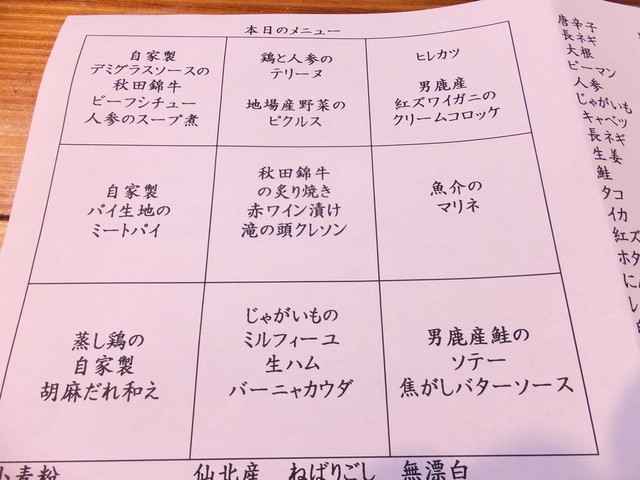 本日のメニュー
自家製
デミグラスソースの
秋田錦牛
ビーフシチュー
人参のスープ煮
鶏と人参の
テリーヌ
地場産野菜の
ピクルス
ヒレカツ
男鹿産
紅ズワイガニの
クリームコロッケ
自家製
パイ生地の
ミートパイ
秋田錦牛
の炙り焼き
赤ワイン漬け
滝の頭クレソン
魚介の
マリネ
蒸し鶏の
自家製
胡麻だれ和え
じゃがいもの
ミルフィーユ
生ハム
バーニャカウダ
男鹿産鮭の
ソテー
焦がしバターソース
小麦粉 仙北産 ねばりごし 無漂白
唐辛子
長ネギ
大根
ピーマン
人参
じゃがいも
キャベツ
長ネギ
生姜
鮭
タコ
イカ
紅ズ
ホタ